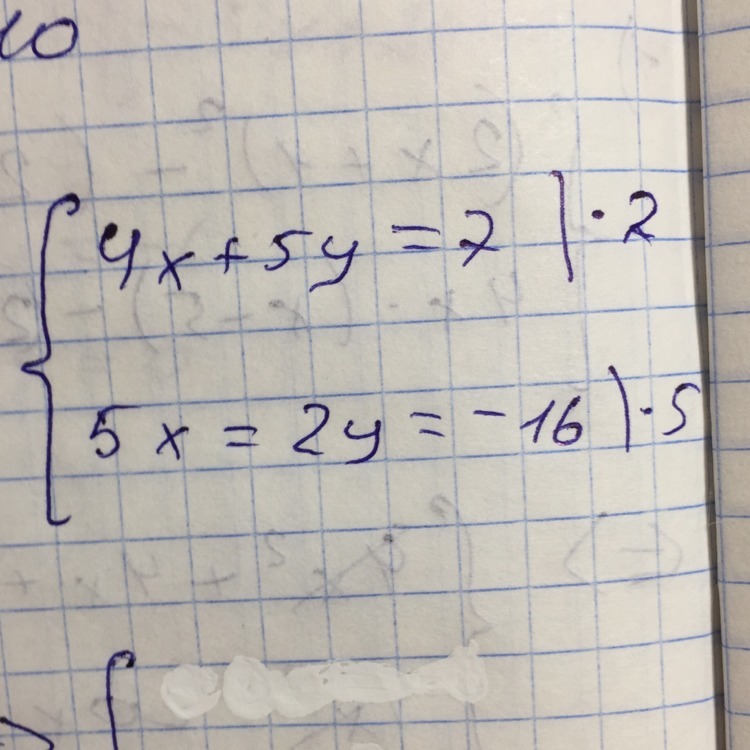 ю
4x + 5y = 2 | · 2
5x = 2y = -16 | · 5